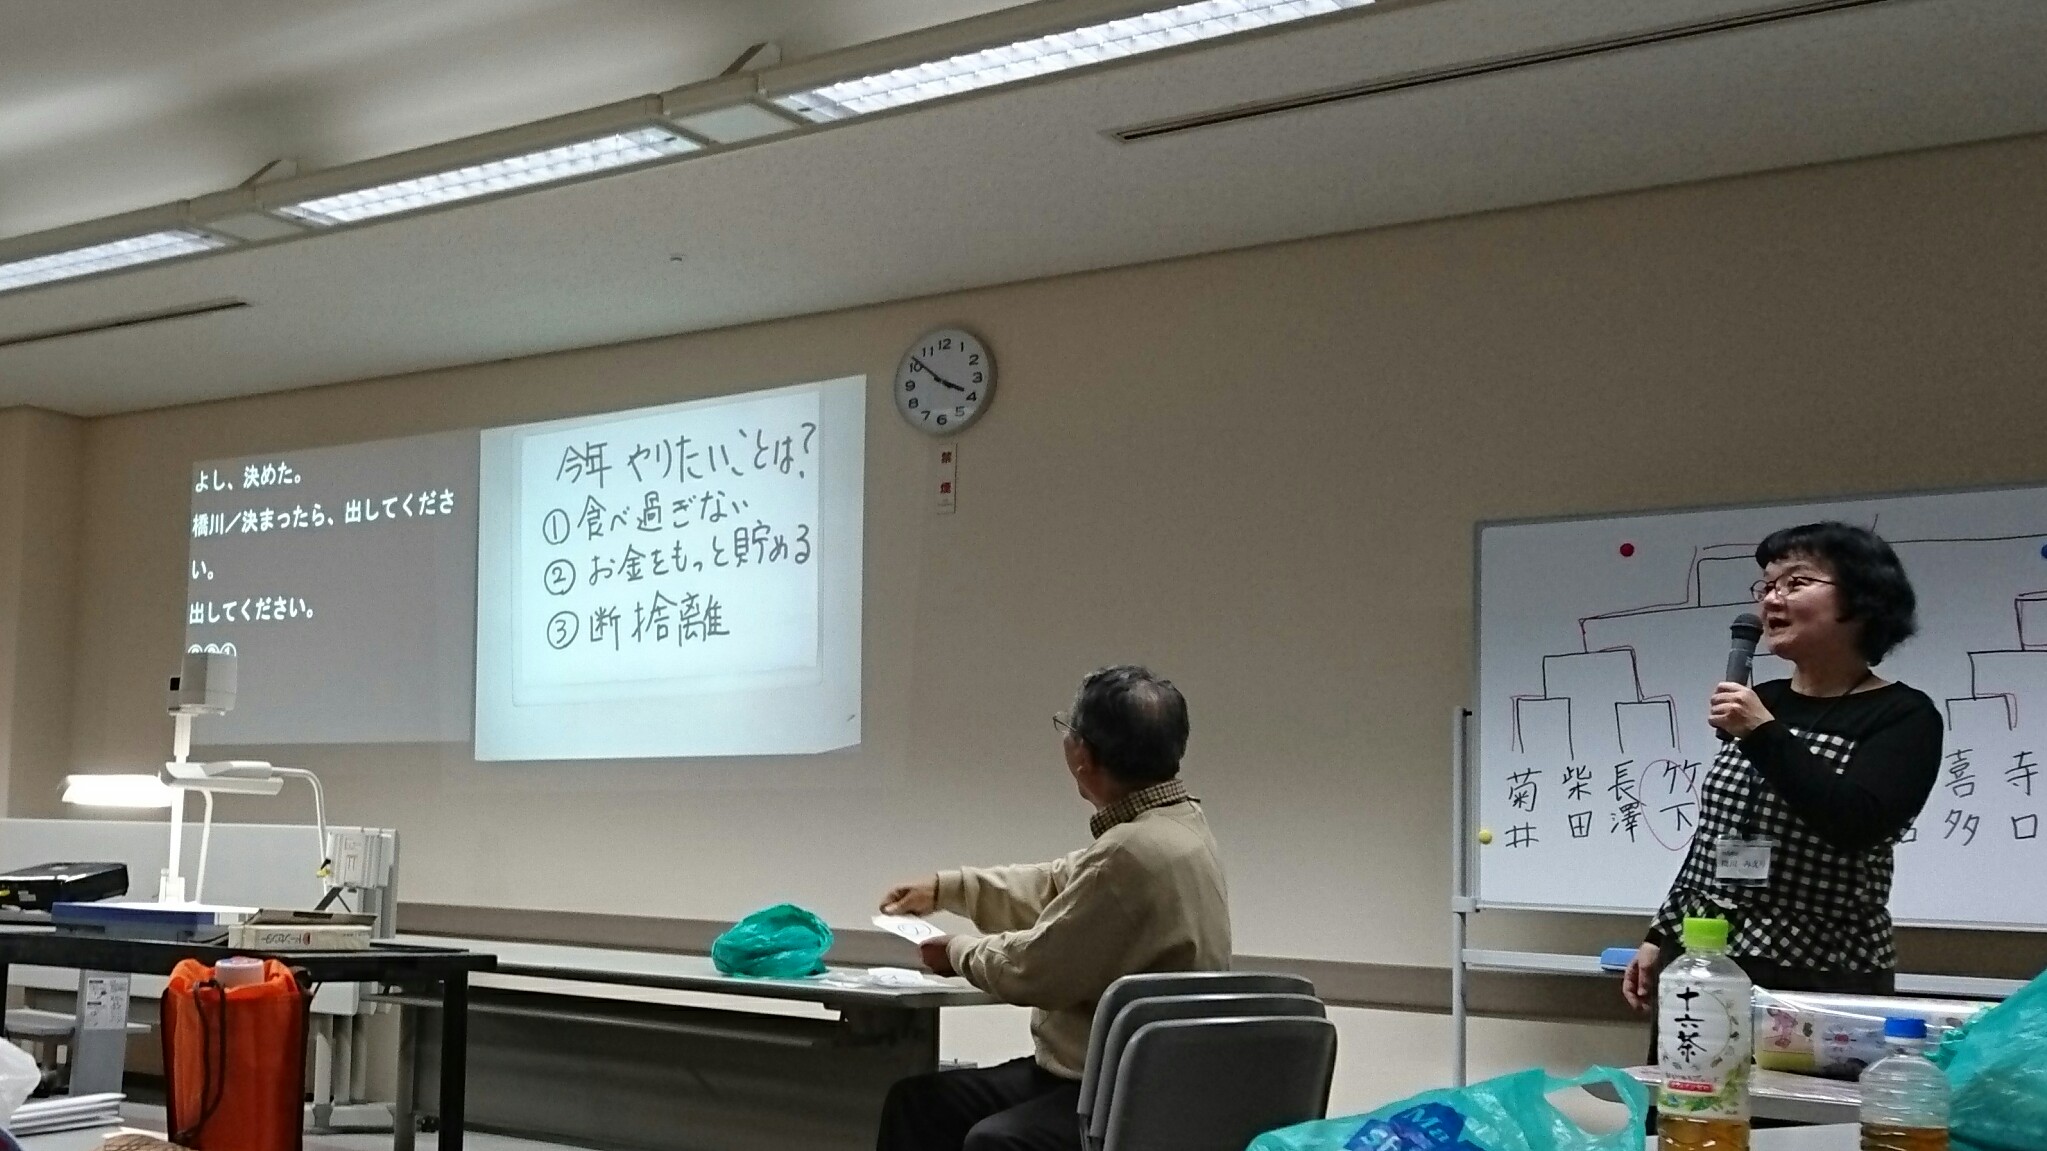 よし、決めた。
橋川／決まったら、出してくださ
い。
出してください。
今年 やりたいことは?
① 食べ過ぎない
② お金をもっと貯める
③ 断捨離
12
1
2
3
4
5
6
7
8
9
10
11
禁煙
菊井
柴田
長澤
竹下
喜多
寺口
十六茶